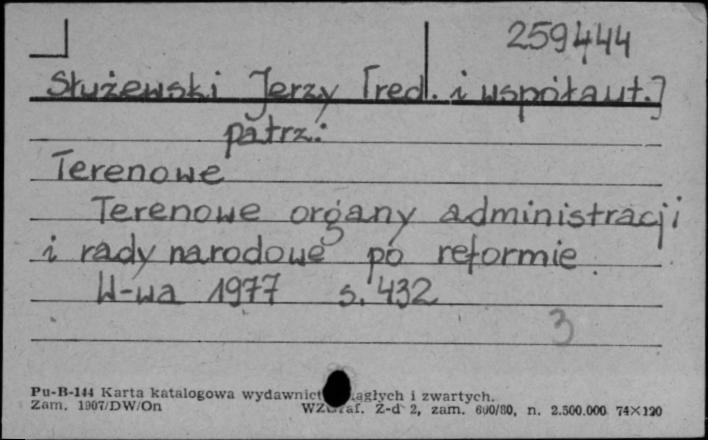 259444
Służewski Jerzy [red. i współaut.]
patrz:
Terenowe
Terenowe organy administracji
i rady narodowe po reformie.
W-wa 1977 s. 432
3
Pu-B-144 Karta katalogowa wydawnict ągłych i zwartych.
Zam. 1907/DW/On WZGraf. Z-d 2, zam. 600/80, n. 2.500.000 74×120